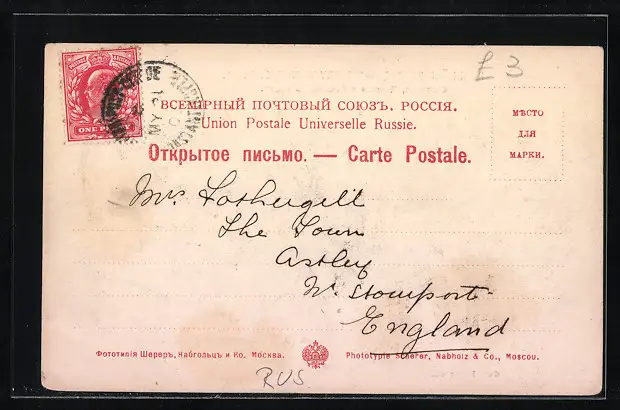 £3
POSTAGE REVENUE
ONE PENNY
ВСЕМІРНЫЙ ПОЧТОВЫЙ СОЮЗЪ. РОССІЯ.
Union Postale Universelle Russie.
Открытое письмо. — Carte Postale.
МѢСТО
ДЛЯ
МАРКИ.
Mrs Fothergill
The Town
Astley
Nr Stourport
England
Фототипія Шереръ, Набгольцъ и Ко. Москва.
Phototypie Scherer, Nabholz & Co., Moscou.
RUS.